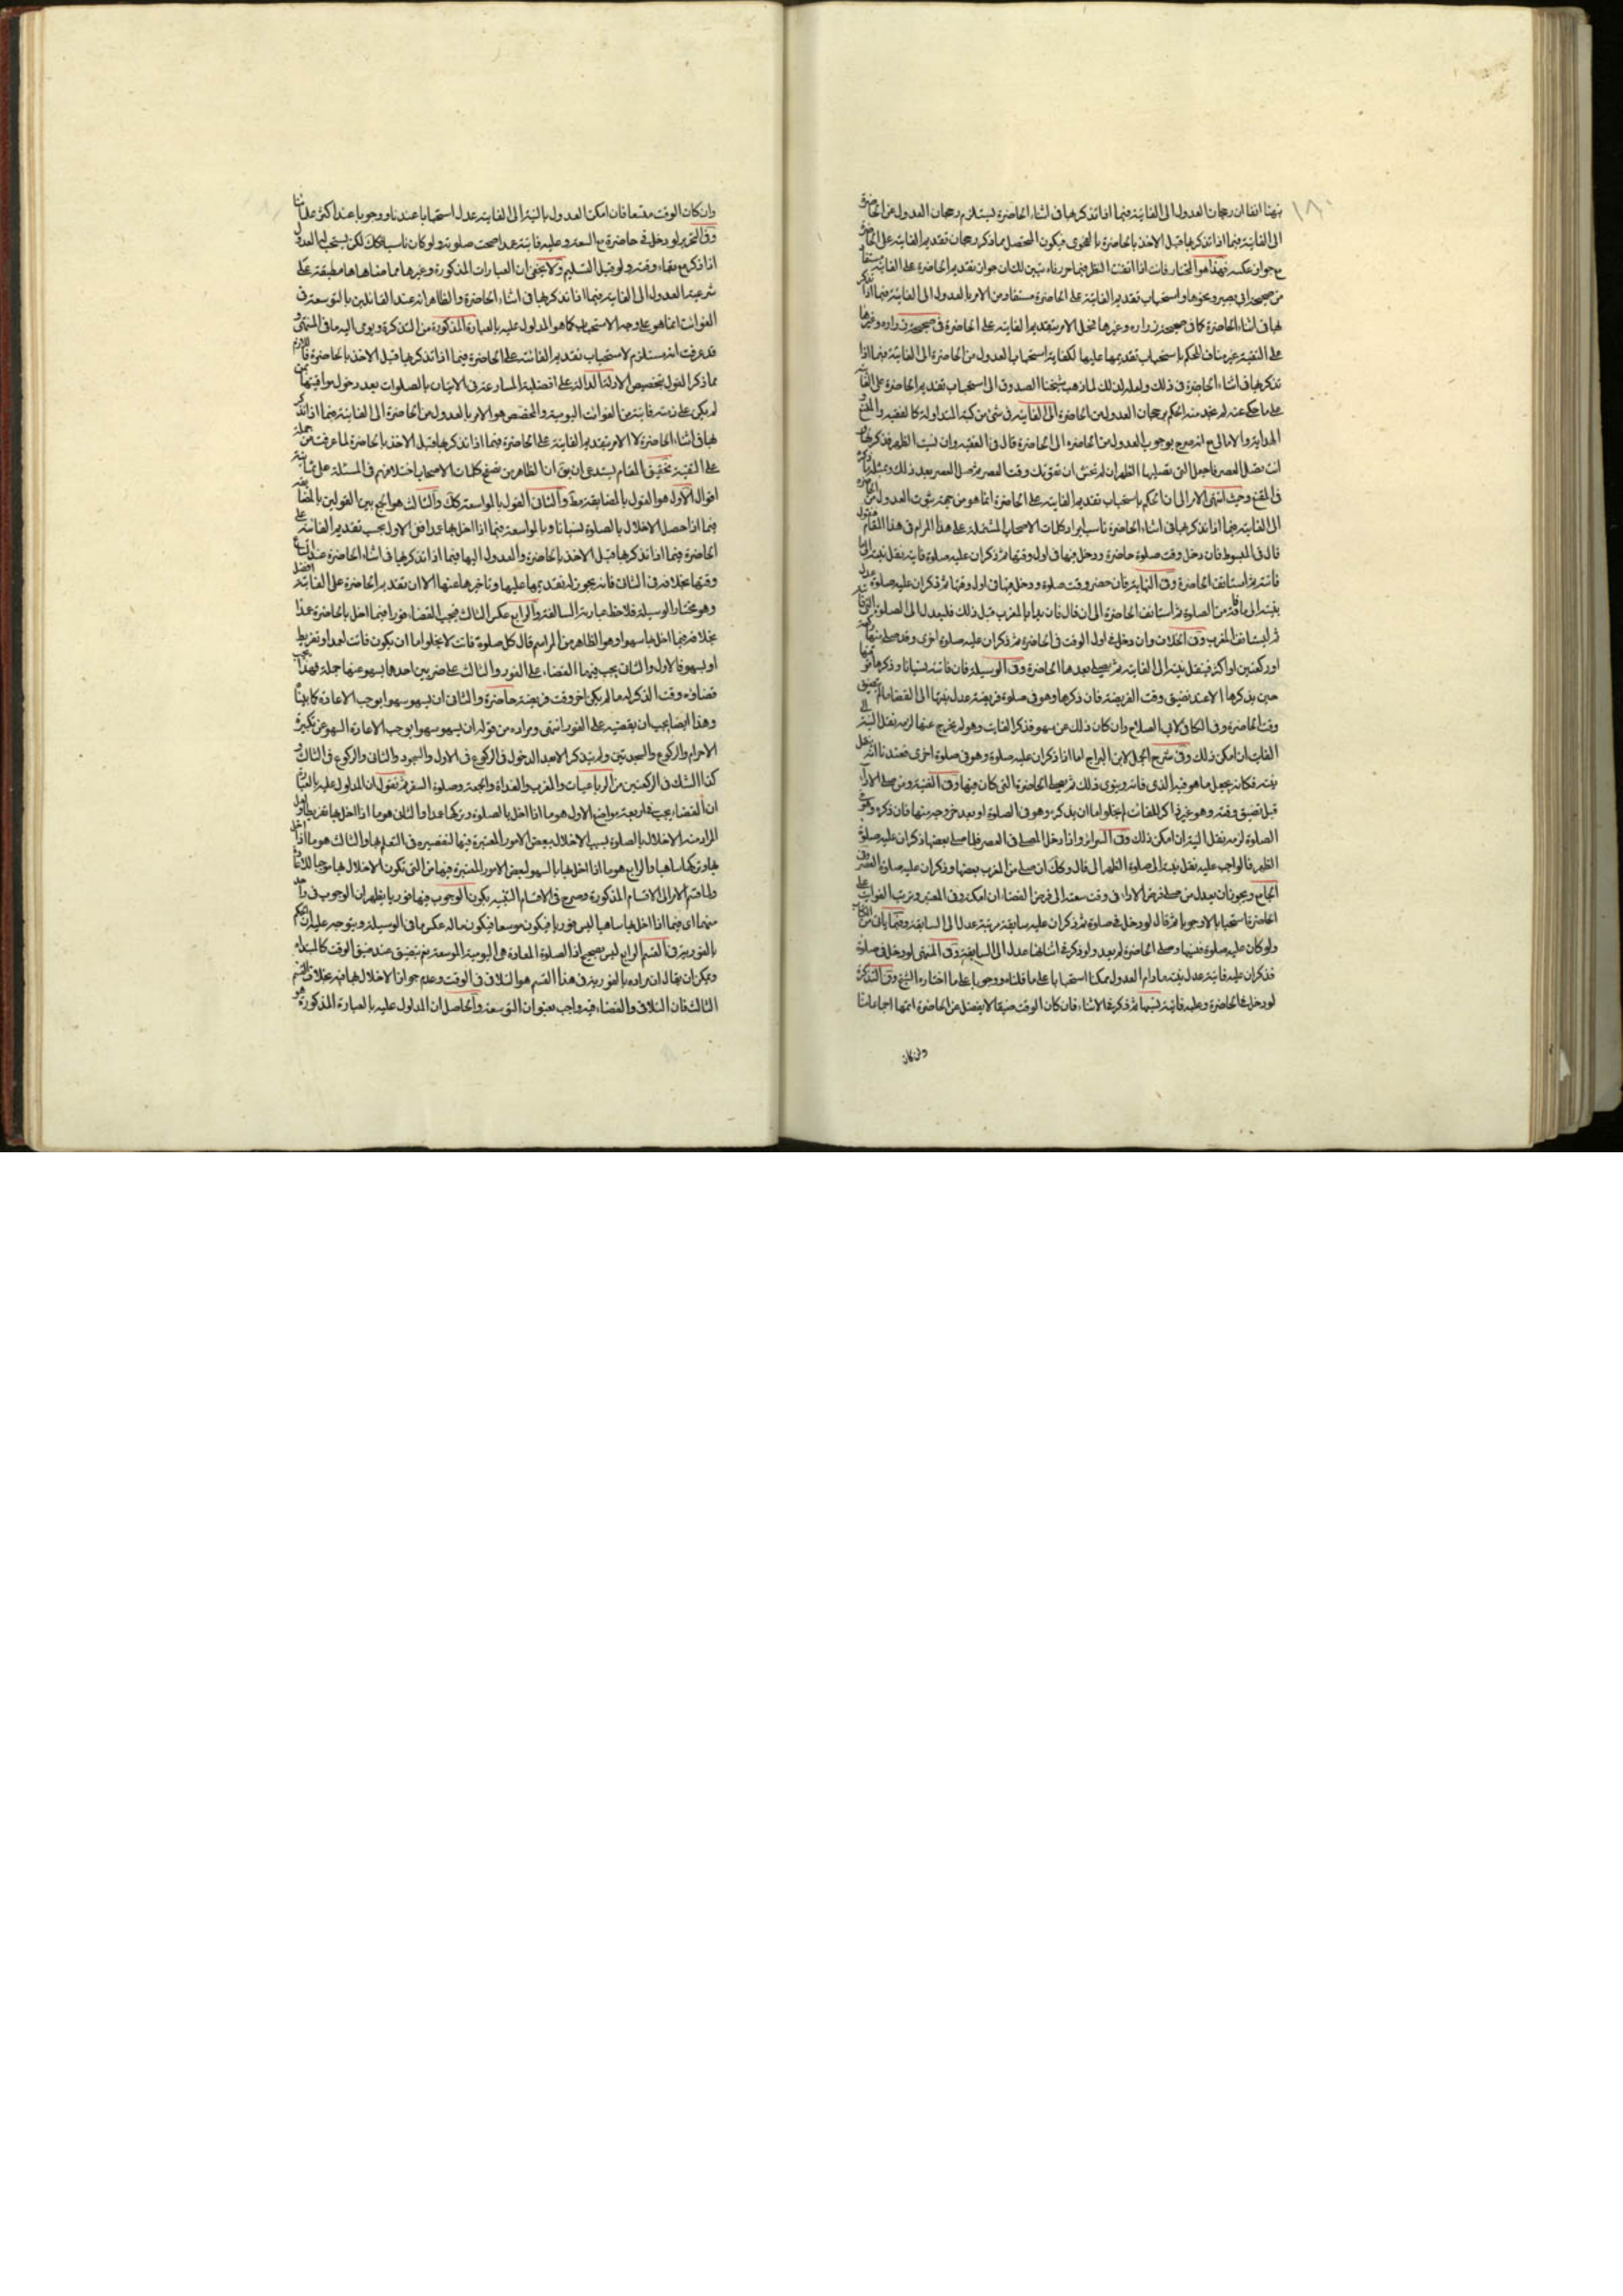 نبهنا انفا ان رجحان العدول الى الفايتة فيما اذا تذكرها فى اثناء الحاضرة يستلزم رجحان العدول عن الحاضرة
الى الفايتة فيما اذا تذكرها قبل الاخذ بالحاضرة بالفحوى فيكون المتحصل مما ذكر رجحان تقديم الفايتة على الحاضرة
مع جواز عكسه فهذا هو المختار فانت اذا اتقنت النظر فيما حررناه تبين لك ان جواز تقديم الحاضرة على الفايتة مستفاد
من صحيحة ابى بصير ونحوها واستحباب تقديم الفايتة على الحاضرة مستفاد من الامر بالعدول الى الفايتة فيما اذا تذكر
ها فى اثناء الحاضرة كما فى صحيحة زرارة وغيرها فحمل الامر بتقديم الفايتة على الحاضرة فى صحيحة زرارة وغيرها
على التقية غير مناف للحكم باستحباب تقديمها عليها لكفاية استحباب العدول من الحاضرة الى الفايتة فيما اذا
تذكرها فى اثناء الحاضرة فى ذلك ولعله لذلك لما ذهب شيخنا الصدوق الى استحباب تقديم الحاضرة على الفايتة
على ما حكى عنه لم نجد منه الحكم برجحان العدول من الحاضرة الى الفايتة فى شئ من كتبه المتداولة كالفقيه والمقنع
الهداية والامالى مع انه صرح بوجوب العدول من الحاضرة الى الحاضرة قال فى الفقيه وان نسيت الظهر فذكرتها و
انت تصلى العصر فاجعل التى تصليها الظهر ان لم تخش ان تفوتك وقت العصر ثم صل العصر بعد ذلك ومثله ما ذكره
فى المقنع وحيث انتهى الامر الى ان الحكم باستحباب تقديم الفايتة على الحاضرة انما هو من جهة ثبوت العدول من الحاضرة
الى الفايتة فيما اذا تذكرها فى اثناء الحاضرة ناسب ايراد كلمات الاصحاب المشتملة على هذا المرام فى هذا المقام فنقول
قال فى المبسوط فان دخل وقت صلوة حاضرة ودخل فيها فى اول وقتها ثم ذكر ان عليه صلوة فايتة نقل نيته الى ما
فاتته ثم استانف الحاضرة وفى النهاية فان حضر وقت صلوة ودخل فيها فى اول وقتها ثم ذكر ان عليه صلوة عدل
بنيته الى ما فاته من الصلوة ثم استانف الحاضرة الى ان قال فان بدا بالمغرب قبل ذلك فليعدل الى الصلوة التى فاتته
ثم ليستانف المغرب وفى الخلاف وان دخل فى اول الوقت فى الحاضرة ثم ذكر ان عليه صلوة اخرى وقد صلى منها ركعة
او ركعتين او اكثر فينقل نيته الى الفايتة ثم يصلى بعدها الحاضرة وفى الوسيلة فان فاتته نسيانا وذكرها فوقتها
حين يذكرها الا عند تضيق وقت الفريضة فان ذكرها وهو فى صلوة فريضة عدل بنيتها الى القضاء ما لم يتضيق
وقت الحاضرة وفى الكافى لابى الصلاح وان كان ذلك عن سهو فذكر الفايت وهو لم يخرج عنها لزمه نقل النية الى
الفايت ان امكن ذلك وفى شرح الجمل لابن البراج اما اذا ذكر ان عليه صلوة وهو فى صلوة اخرى فعندنا انه ينقل
نيته فكانه يجعل ما هو فيه الذى فاته وينوى ذلك ثم يصلى الحاضرة التى كان فيها وفى الغنية ومن صلى الاداء
قبل تضيق وقته وهو غير ذاكر للفائت لم يخلو اما ان يذكره وهو فى الصلوة او بعد خروجه منها فان ذكره وهو فى
الصلوة لزمه نقل النية ان امكن ذلك وفى السرائر واذا دخل المصلى فى العصر فلما صلى بعضها ذكر ان عليه صلوة
الظهر فالواجب عليه نقل نيته الى صلوة الظهر الى قال وكذلك ان صلى من المغرب بعضها وذكر ان عليه صلوة العصر وفى
الجامع ويجوز ان يعدل من صلى فرض الاداء فى وقت سعته الى فرض القضاء ان امكنه وفى المعتبر وترتب الفوايت على
الحاضرة استحبابا لا وجوبا ثم قال لو دخل فى صلوة ثم ذكر ان عليه سابقة مرتبة عدل الى السابقة وفيما ياتى من الكتاب
ولو كان عليه صلوة فنسيها وصلى الحاضرة لم يعد ولو ذكر فى اثنائها عدل الى السابقة وفى المنتهى لو دخل فى صلوة
فذكر ان عليه فايتة عدل بنيته ما دام العدول ممكنا استحبابا على ما قلناه ووجوبا على ما اختاره الشيخ وفى التذكرة
لو دخل فى الحاضرة وعليه فايتة نسيها ثم ذكر فى الاثناء فان كان الوقت ضيقا لا يفضل عن الحاضرة اتمها اجماعا منا
وان كان
وان كان الوقت متسعا فان امكن العدول بالنية الى الفايتة عدل استحبابا عندنا ووجوبا عند اكثر علمائنا
وفى التحرير لو دخل فى حاضرة مع السعة وعليه فايتة عمدا صحت صلوته ولو كان ناسيا فكك لكن يستحب له العدول
اذا ذكر مع بقاء وقته ولو قبل التسليم ولا يخفى ان العبارات المذكورة وغيرها مما ضاهاها مطبقة على
شرعية العدول الى الفايتة فيما اذا تذكرها فى اثناء الحاضرة والظاهر انه عند القائلين بالتوسعة فى
الفوائت انما هو على وجه الاستحباب كما هو المدلول عليه بالعبارة المذكورة من التذكرة ويومى اليه ما فى المنتهى و
قد عرفت انه مستلزم لاستحباب تقديم الفائتة على الحاضرة فيما اذا تذكرها قبل الاخذ بالحاضرة فاللازم
مما ذكر القول بتخصيص الادلة الدالة على افضلية المسارعة فى الاتيان بالصلوات بعد دخول مواقيتها بمن
لم يكن على ذمته فايتة من الفوائت اليومية والمخصص هو الامر بالعدول من الحاضرة الى الفايتة فيما اذا تذكر
ها فى اثناء الحاضرة لا الامر بتقديم الفايتة على الحاضرة فيما اذا تذكرها قبل الاخذ بالحاضرة لما عرفت من حمله
على التقية تحقيق المقام يستدعى ان يق ان الظاهر من تصفح كلمات الاصحاب اختلافهم فى المسئلة على ثمانية
اقوال الاول هو القول بالمضايقة مط والثانى القول بالمواسعة كك والثالث هو الجمع بين القولين بالمضايقة
فيما اذا حصل الاخلال بالصلوة نسيانا وبالمواسعة فيما اذا اخل بها عمدا فعلى الاول يجب تقديم الفائتة على
الحاضرة فيما اذا تذكرها قبل الاخذ بالحاضرة والعدول اليها فيما اذا تذكرها فى اثناء الحاضرة عند اتساع
وقتها بخلافه فى الثانى فانه يجوز له تقديمها عليها وتاخيرها عنها الا ان تقديم الحاضرة على الفائتة افضل
وهو مختار الوسيلة فلاحظ عبارته السالفة والرابع عكس الثالث فيجب القضاء فورا فيما اخل بالحاضرة عمدا
بخلافه فيما اخل بها سهوا وهو الظاهر من المراسم قال كل صلوة فاتت لا يخلوا اما ان يكون فاتت لعمد او تفريط
او لسهو فالاول والثانى يجب فيهما القضاء على الفور والثالث على ضربين احدهما يسهو عنها جملة فهذا يجب
قضاؤه وقت الذكر له ما لم يكن اخر وقت فريضة حاضرة والثانى ان يسهو سهوا يوجب الاعادة كما بيناه
وهذا ايضا يجب ان يقضيه على الفور انتهى ومراده من قوله ان يسهو سهوا يوجب الاعادة السهو عن تكبيرة
الاحرام والركوع والسجدتين ولم يتذكر الا بعد الدخول فى الركوع فى الاول والسجود والثانى والركوع فى الثالث و
كذا الشك فى الركعتين من الرباعيات والمغرب والغداة والجمعة وصلوة السفر ثم نقول ان المدلول عليه بالعبارة
ان القضاء يجب فى اربعة مواضع الاول هو ما اذا اخل بالصلوة وتركها عمدا والثانى هو ما اذا اخل بها تفريطا ولعل
المراد منه الاخلال بالصلوة بسبب الاخلال ببعض الامور المعتبرة فيها لتقصيره فى التعلم لها والثالث هو ما اذا اخل
بها وتركها ساهيا والرابع هو ما اذا اخل بها بالسهو لبعض الامور المعتبرة فيها من التى تكون الاخلال بها موجبا للاعادة
ولما قسم الامر الى الاقسام المذكورة وصرح فى الاقسام الثلثة بكون الوجوب فيها فوريا يظهر ان الوجوب فى واحد
منها اى فيما اذا اخل بها ساهيا ليس فوريا فيكون موسعا فيكون ماله عكس ما فى الوسيلة ويتوجه عليه ان الحكم
بالفورية فى القسم الرابع ليس بصحيح اذ الصلوة المعادة هى اليومية الموسعة نعم يتضيق عند ضيق الوقت كالمبتداء
ويمكن ان يقال ان مراده بالفورية فى هذا القسم هو التلافى فى الوقت وعدم جواز الاخلال بها فيه بخلاف القسم
الثالث فان التلافى والقضاء فيه واجب بعنوان التوسعة والحاصل ان المدلول عليه بالعبارة المذكورة هو